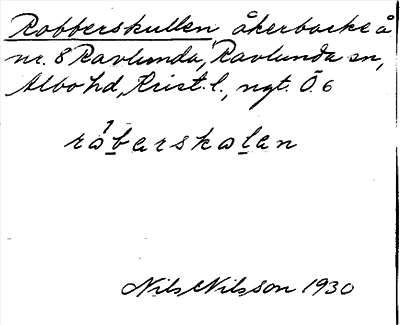 Robberskullen, åkerbacke å
nr. 8 Ravlunda, Ravlunda sn,
Albo hd, Krist. l., ngt. Ö. 6
råberskalen
Nils Nilsson 1930